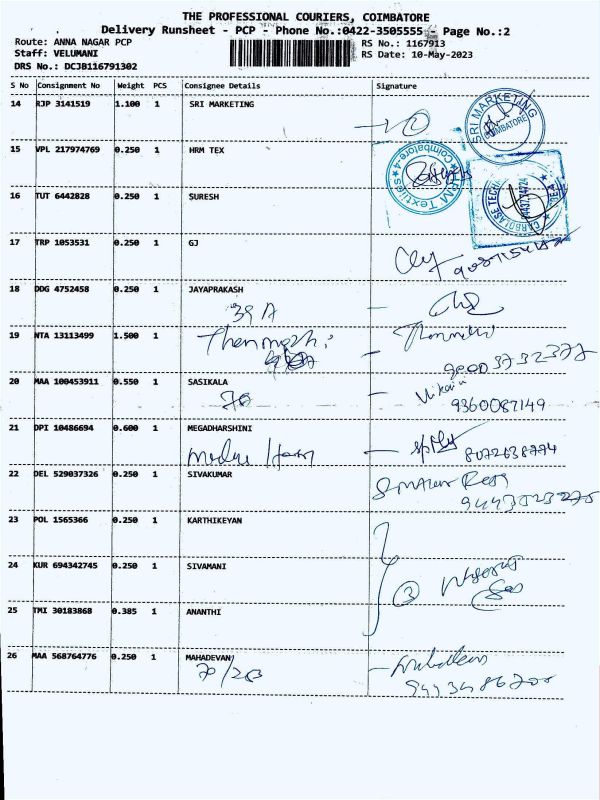 THE PROFESSIONAL COURIERS, COIMBATORE
Delivery Runsheet - PCP - Phone No.:0422-3505555 - Page No.:2
Route: ANNA NAGAR PCP RS No.: 1167913
Staff: VELUMANI RS Date: 10-May-2023
DRS No.: DCJB116791302
S No Consignment No Weight PCS Consignee Details Signature
14 RJP 3141519 1.100 1 SRI MARKETING
SRI MARKETING COIMBATORE
15 VPL 217974769 0.250 1 HRM TEX
HRM Textiles Coimbatore-4
16 TUT 6442828 0.250 1 SURESH
94437 24724
17 TRP 1053531 0.250 1 GJ
18 DDG 4752458 0.250 1 JAYAPRAKASH
39 A
19 NTA 13113499 1.500 1
20 MAA 100453911 0.550 1 SASIKALA
78 9360087149
21 DPI 10486694 0.600 1 MEGADHARSHINI
8072638774
22 DEL 529037326 0.250 1 SIVAKUMAR
23 POL 1565366 0.250 1 KARTHIKEYAN
24 KUR 694342745 0.250 1 SIVAMANI
3
25 TMI 30183868 0.385 1 ANANTHI
26 MAA 568764776 0.250 1 MAHADEVAN
70/203